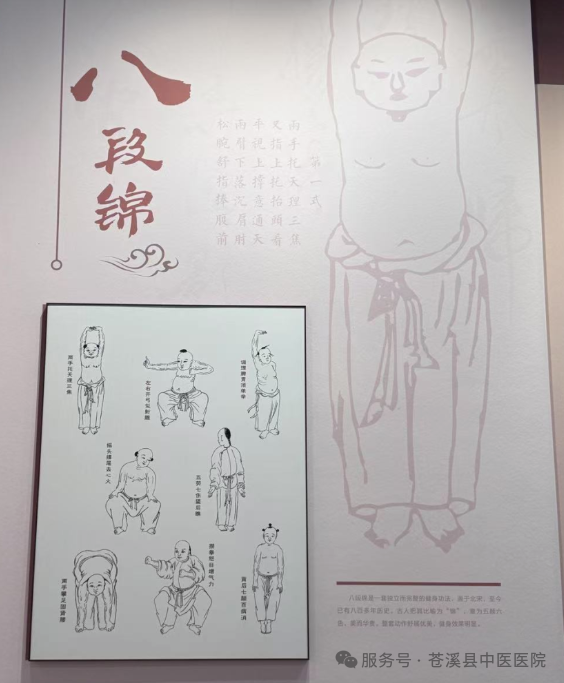 八
段
锦
第一式
兩手托天理三焦
叉指上托抬頭看
平視上撐意通天
兩臂下落沉肩肘
松腕舒指捧腹前
两手托天理三焦
左右开弓似射雕
调理脾胃须单举
摇头摆尾去心火
五劳七伤往后瞧
两手攀足固肾腰
攒拳怒目增气力
背后七颠百病消
八段锦是一套独立而完整的健身功法，起于北宋，至今
已有八百多年历史。古人把其比喻为“锦”，意为五颜六
色，美而华贵。整套动作舒展优美，健身效果明显。
服务号·苍溪县中医医院